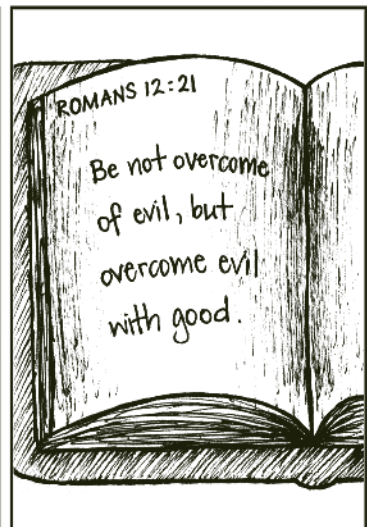 ROMANS 12:21
Be not overcome
of evil, but
overcome evil
with good.